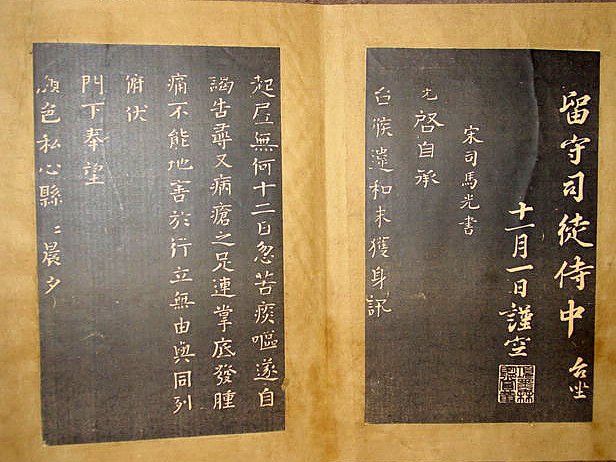 留守司徒侍中 台坐
十一月一日謹空
宋司馬光書
光啓自承
台候違和未獲身訊
起居無何十二日忽苦痰嘔遂自
謁告尋又病瘡之足連掌底發腫
痛不能地害於行立無由與同列
俯伏
門下奉望
顔色私心縣〻晨夕